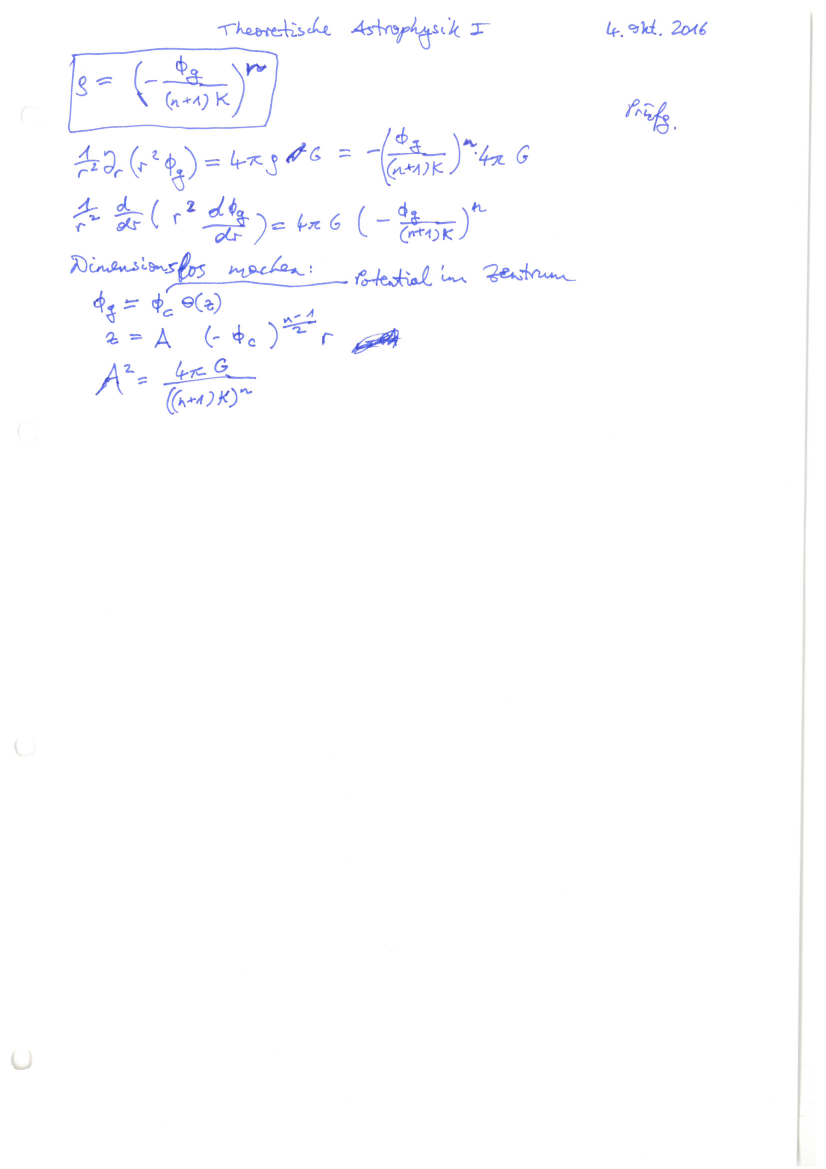 Theoretische Astrophysik I 4. Okt. 2016
ρ = (- ϕ_g / (n+1) K)^n
Prüfg.
1/r² ∂_r (r² ϕ_g) = 4π ρ G = -(ϕ_g / (n+1) K)^n · 4π G
1/r² d/dr ( r² dϕ_g/dr ) = 4π G (- ϕ_g / (n+1) K)^n
Dimensionslos machen: Potential im Zentrum
ϕ_g = ϕ_c Θ(z)
z = A (- ϕ_c)^((n-1)/2) r
A² = 4π G / ((n+1) K)^n